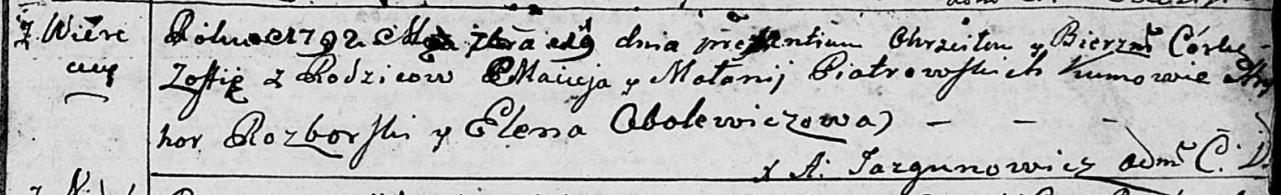 z Wierc
Roku 1792 Msca 7bra 19 dnia presentium Chrzcilem y Bierzm Córke
Zofiię z Rodzicow Macieja y Małanij Piotrowskich Kumowie
hor Rozborski y Elena Abolewiczowa) — — —
x A. Jazgunowicz adm C. D.